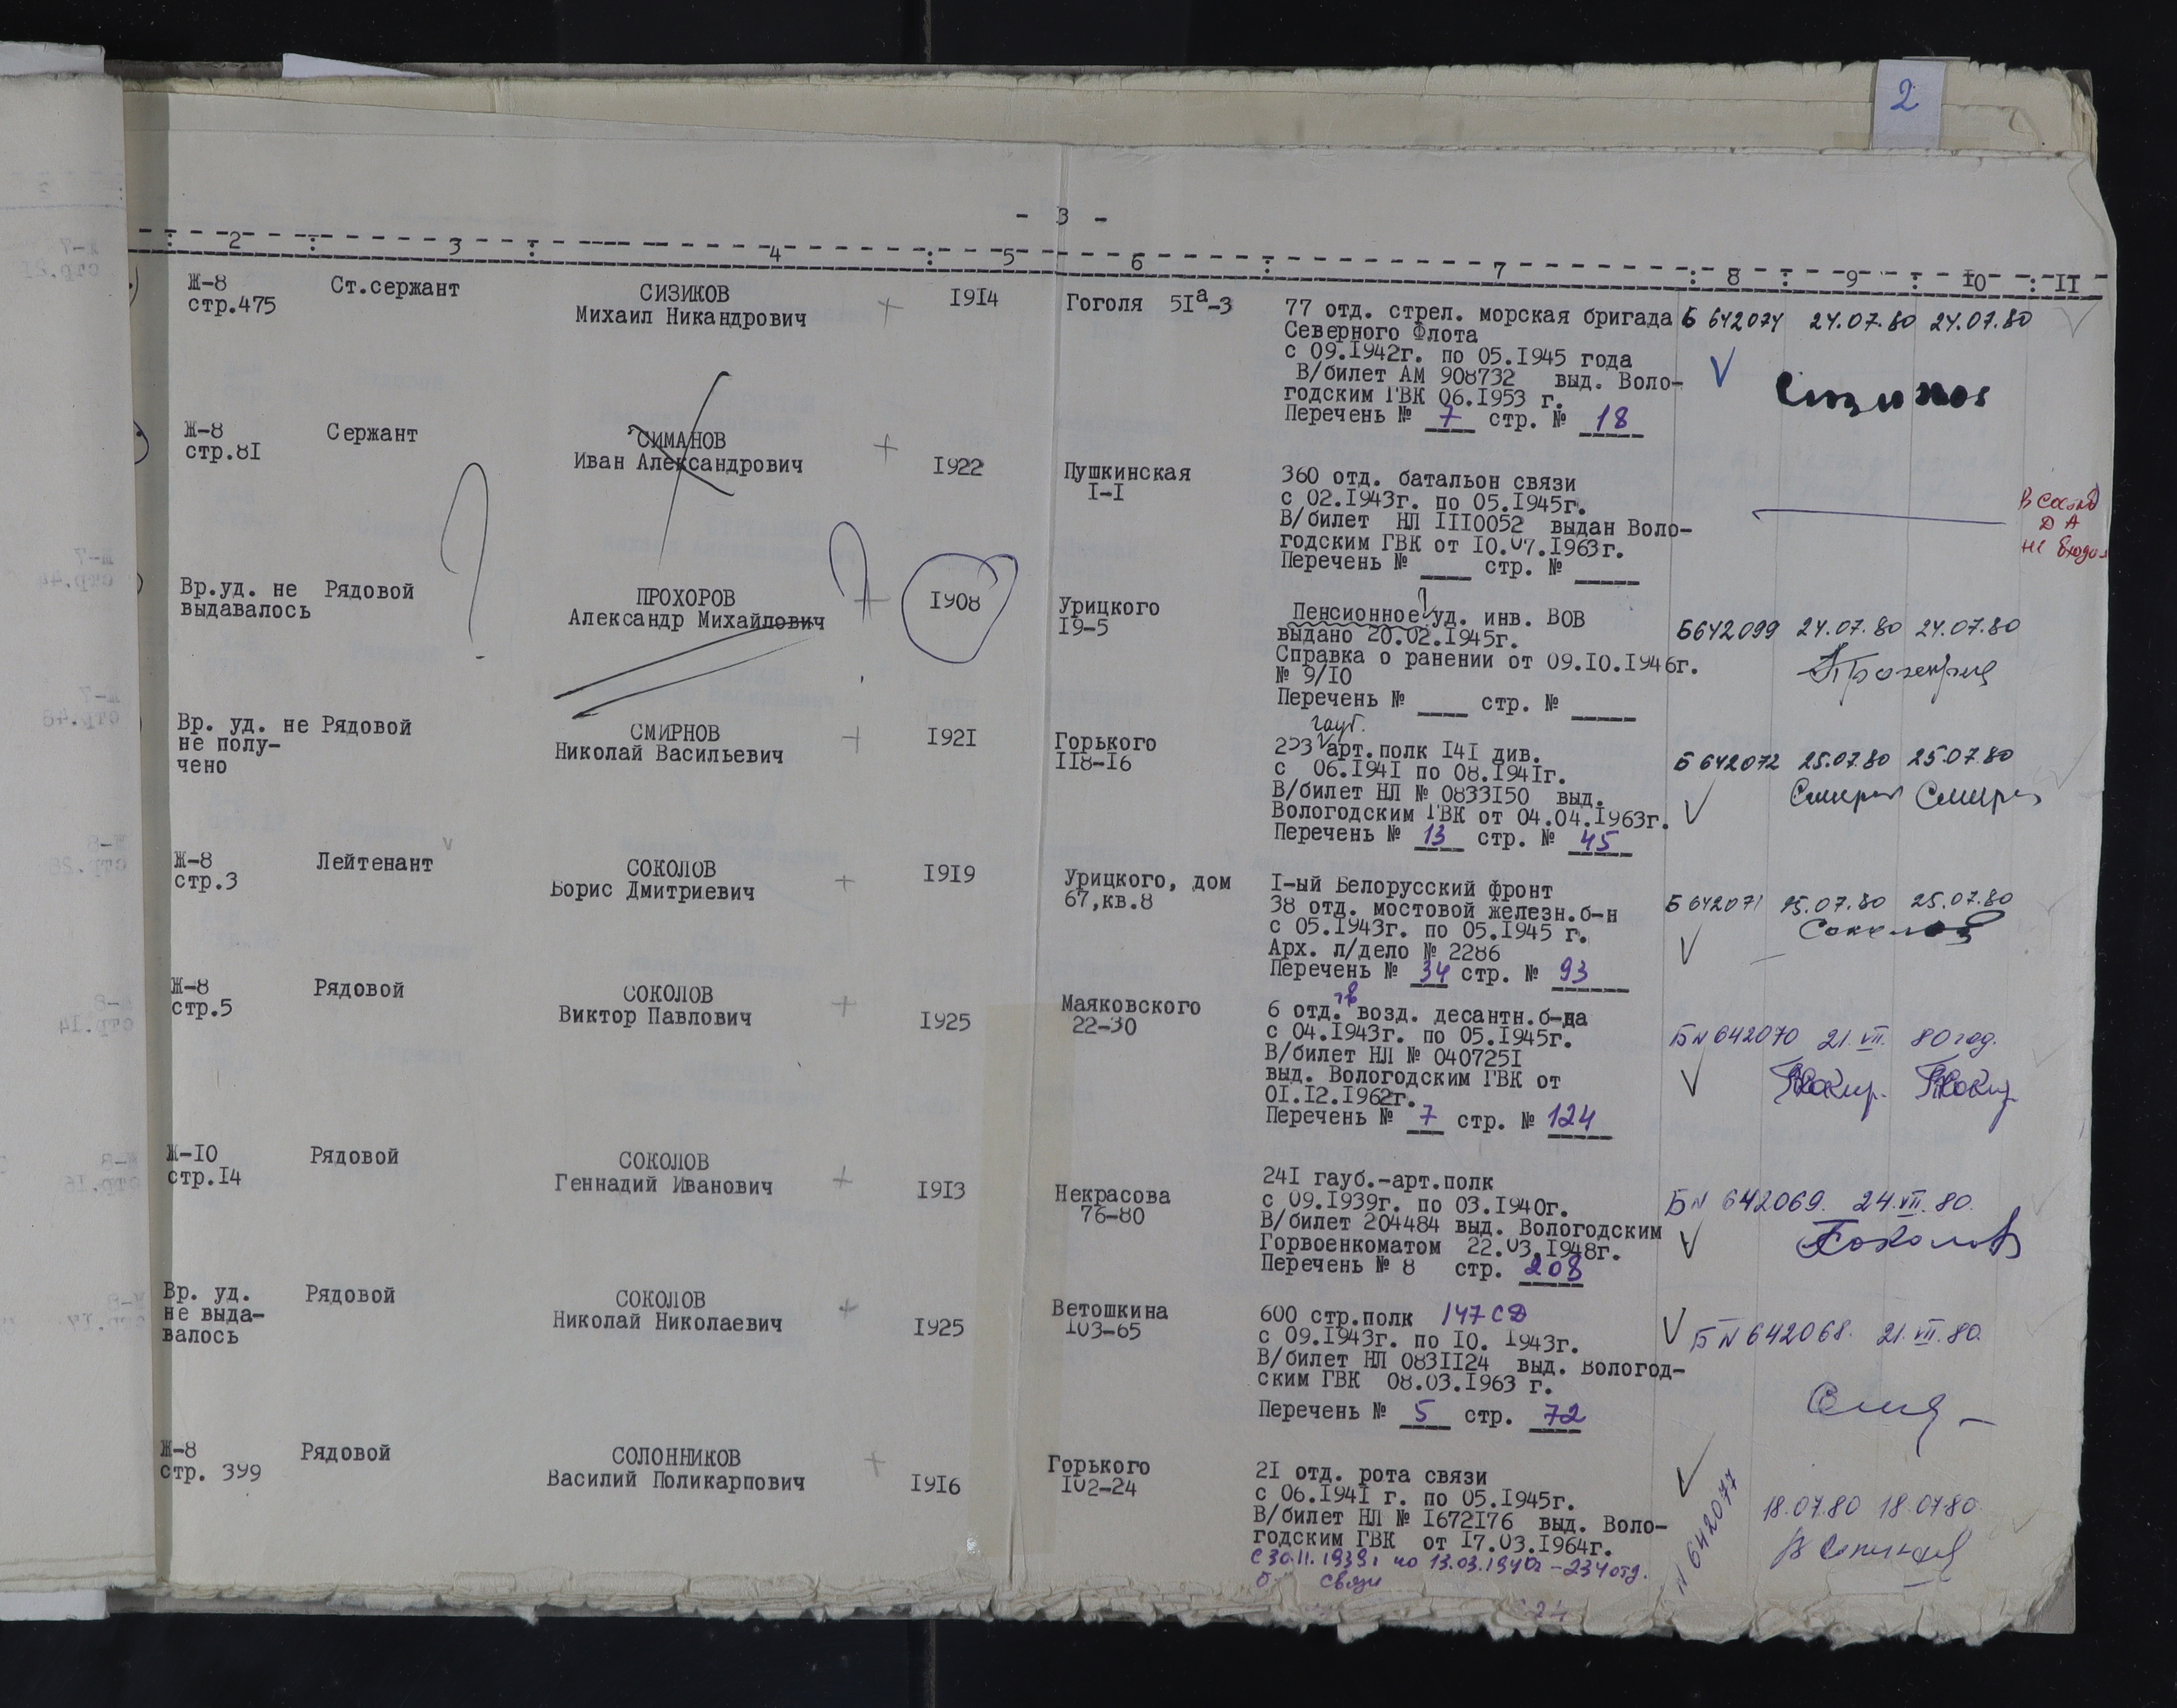 2
- 3 -
2 : 3 : 4 : 5 6 : 7 : 8 : 9 : I0 : II
Ж-8
стр.475
Ст.сержант
СИЗИКОВ
Михаил Никандрович
+
I9I4
Гоголя 5Iа-3
77 отд. стрел. морская бригада
Северного Флота
с 09.I942г. по 05.I945 года
В/билет АМ 908732 выд. Воло-
годским ГВК 06.I953 г.
Перечень № 7 стр. № 18
Б 642074 24.07.80 24.07.80
Сизиков
Ж-8
стр.8I
Сержант
СИМАНОВ
Иван Александрович
+
I922
Пушкинская
I-I
360 отд. батальон связи
с 02.I943г. по 05.I945г.
В/билет НЛ III0052 выдан Воло-
годским ГВК от I0.07.I963г.
Перечень № ____ стр. № _____
в состав
ДА
не входил
Вр.уд. не
выдавалось
Рядовой
?
ПРОХОРОВ
Александр Михайлович
?
+
I908
Урицкого
I9-5
Пенсионное уд. инв. ВОВ
выдано 20.02.I945г.
Справка о ранении от 09.I0.I946г.
№ 9/I0
Перечень № ____ стр. № _____
Б642099 24.07.80 24.07.80
Вр. уд. не
не полу-
чено
Рядовой
СМИРНОВ
Николай Васильевич
+
I92I
Горького
II8-I6
гауб.
253 арт.полк I4I див.
с 06.I94I по 08.I94Iг.
В/билет НЛ № 0833I50 выд.
Вологодским ГВК от 04.04.I963г.
Перечень № 13 стр. № 45
Б 642072 25.07.80 25.07.80
Ж-8
стр.3
Лейтенант
СОКОЛОВ
Борис Дмитриевич
+
I9I9
Урицкого, дом
67,кв.8
I-ый Белорусский фронт
38 отд. мостовой железн.б-н
с 05.I943г. по 05.I945 г.
Арх. л/дело № 2286
Перечень № 34 стр. № 93
Б 642071 25.07.80 25.07.80
Соколов
Ж-8
стр.5
Рядовой
СОКОЛОВ
Виктор Павлович
+
I925
Маяковского
22-30
6 отд. возд. десантн.б-да
с 04.I943г. по 05.I945г.
В/билет НЛ № 040725I
выд. Вологодским ГВК от
0I.I2.I962г.
Перечень № 7 стр. № 124
Б N 642070 21.VII. 80 год.
Ж-I0
стр.I4
Рядовой
СОКОЛОВ
Геннадий Иванович
+
I9I3
Некрасова
76-80
24I гауб.-арт.полк
с 09.I939г. по 03.I940г.
В/билет 204484 выд. Вологодским
Горвоенкоматом 22.03.I948г.
Перечень № 8 стр. 208
Б N 642069. 24.VII.80.
Соколов
Вр. уд.
не выда-
валось
Рядовой
СОКОЛОВ
Николай Николаевич
+
I925
Ветошкина
I03-65
600 стр.полк 147 СД
с 09.I943г. по I0. I943г.
В/билет НЛ 083II24 выд. Вологод-
ским ГВК 08.03.I963 г.
Перечень № 5 стр. 72
Б N 642068. 21.VII.80.
Ж-8
стр. 399
Рядовой
СОЛОННИКОВ
Василий Поликарпович
+
I9I6
Горького
I02-24
2I отд. рота связи
с 06.I94I г. по 05.I945г.
В/билет НЛ № I672I76 выд. Воло-
годским ГВК от I7.03.I964г.
с 30.11.1939г по 13.03.1940г - 234 отд.
связи
N 642077
18.07.80 18.07.80